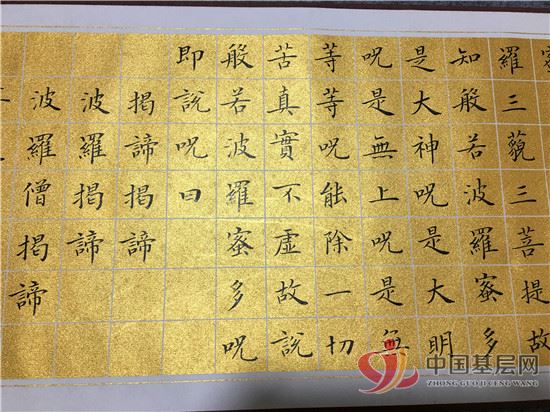 羅三藐三菩提故
知般若波羅蜜多
是大神呪是大明
呪是無上呪是無
等等呪能除一切
苦真實不虛故說
般若波羅蜜多呪
即說呪曰
揭諦揭諦
波羅揭諦
波羅僧揭諦
中国基层网
ZHONG GUO JI CENG WANG